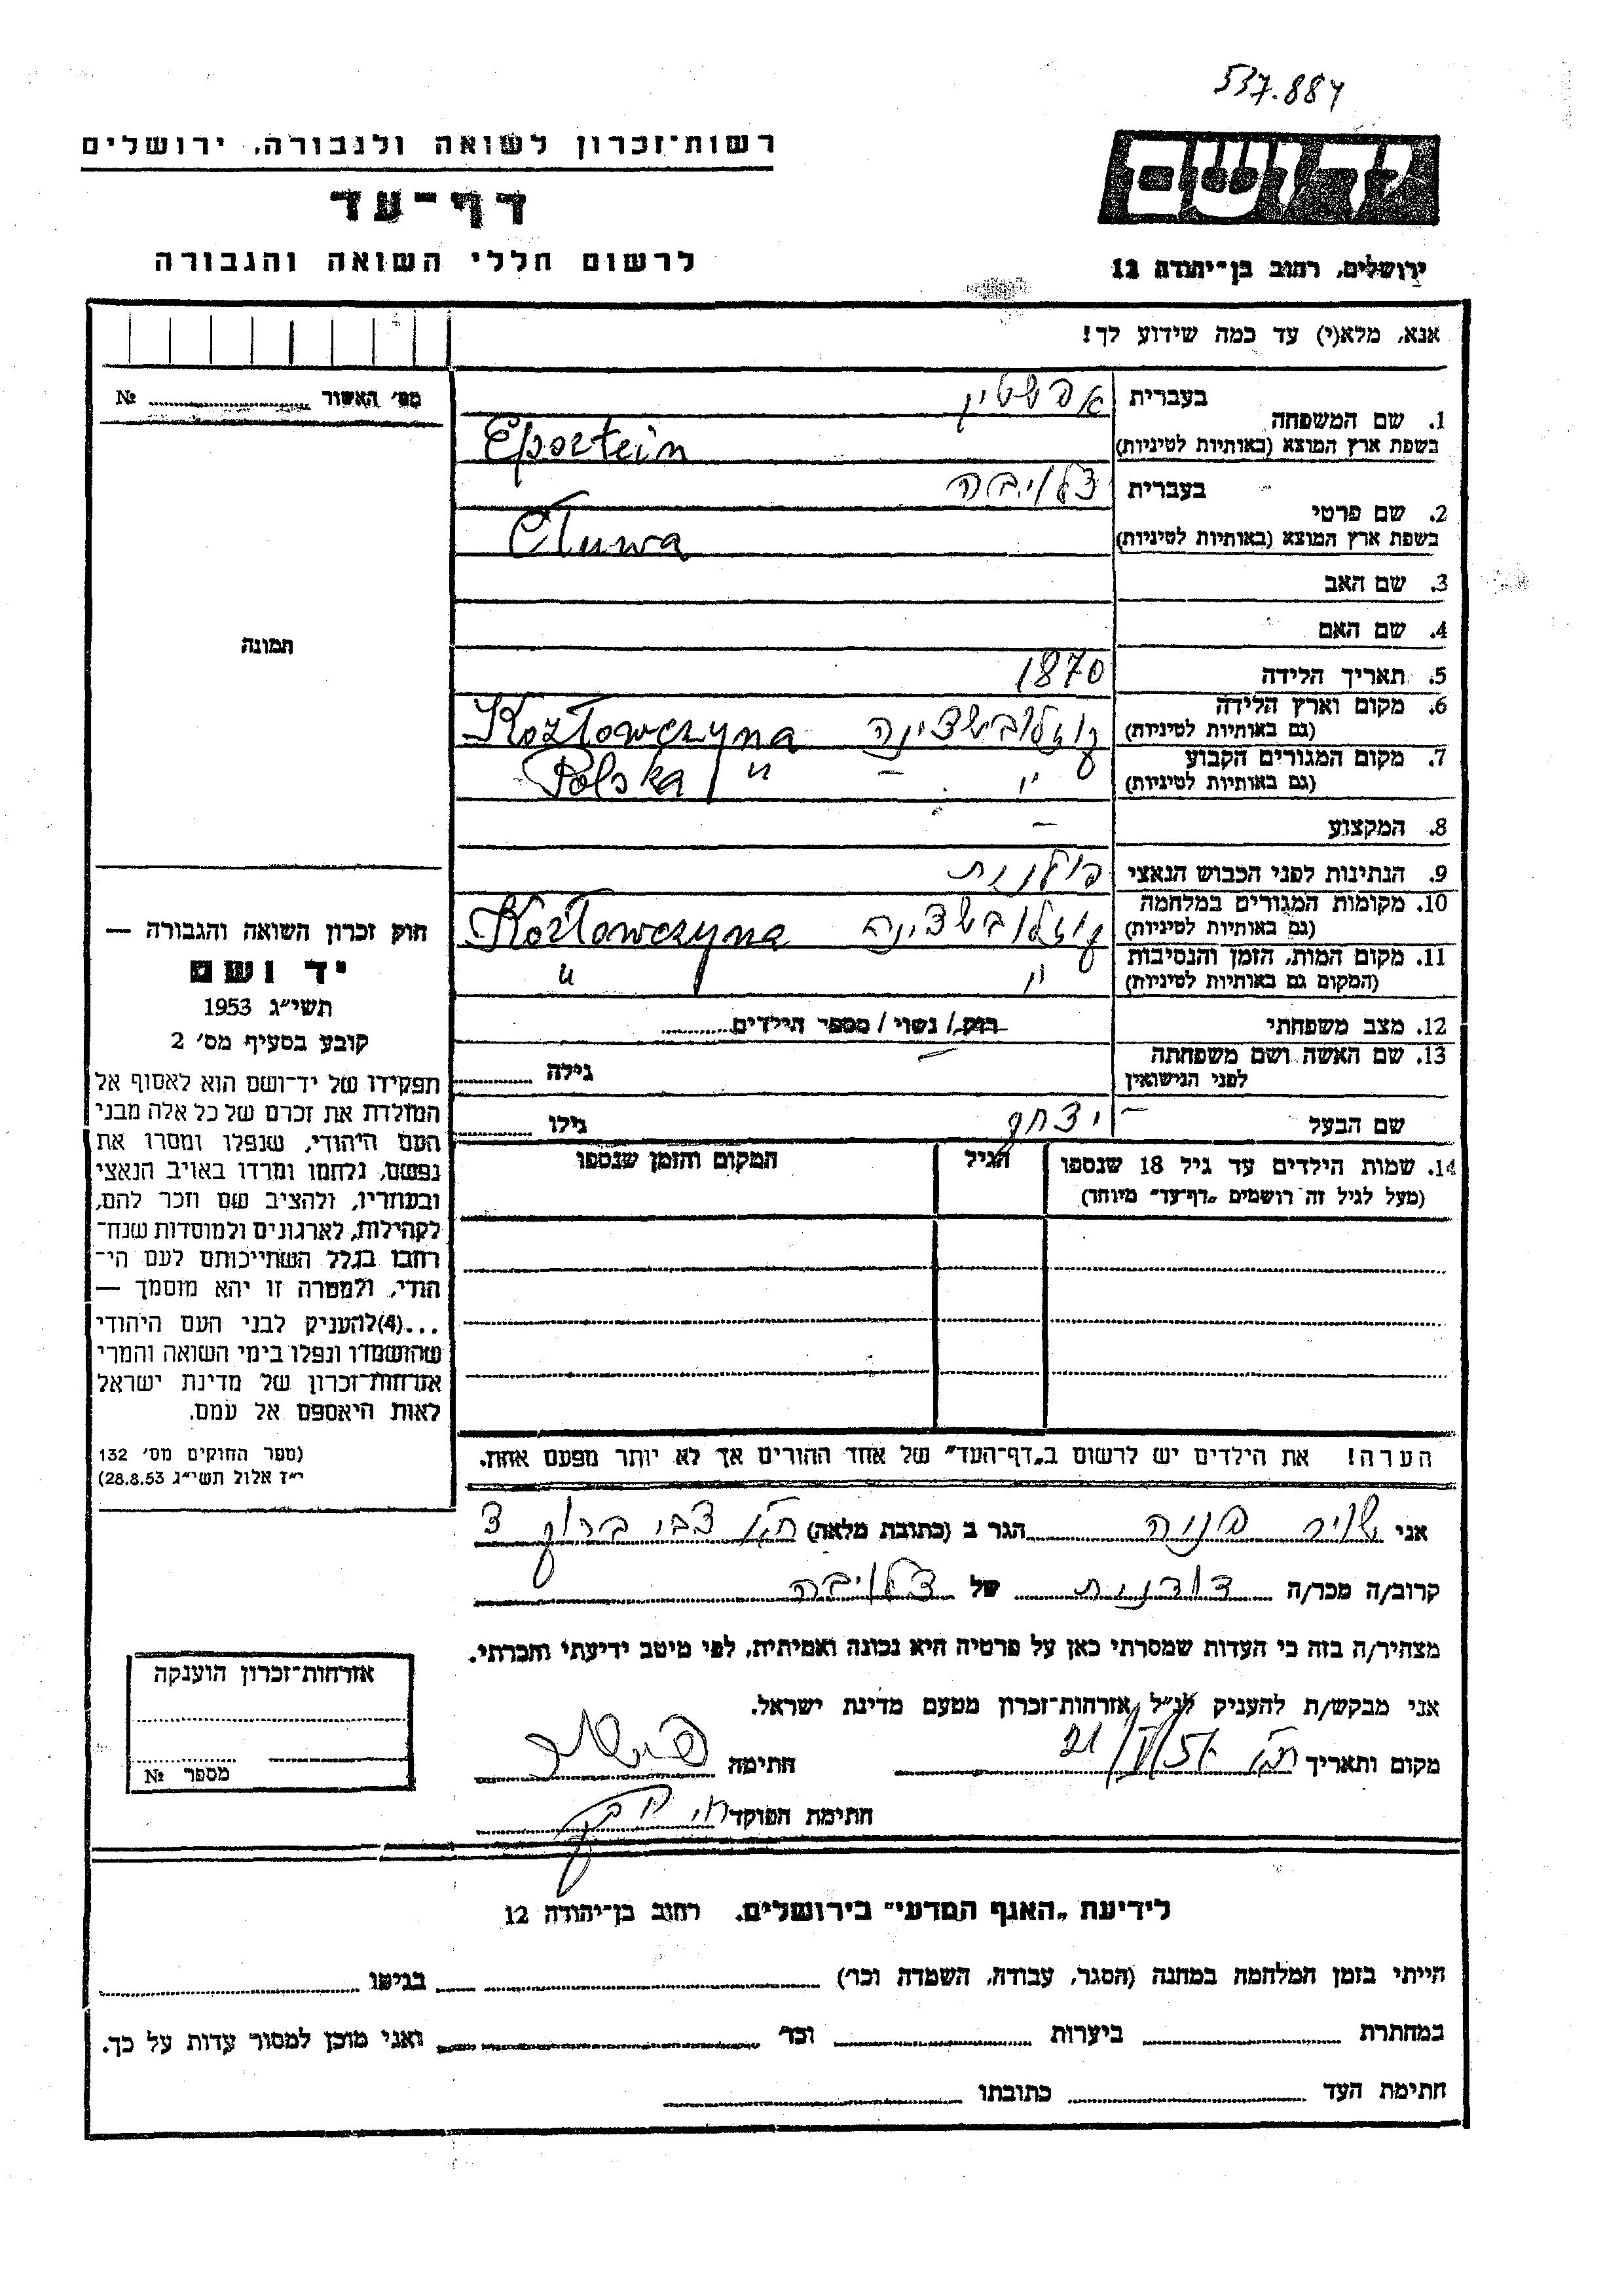 537.884
רשות־זכרון לשואה ולגבורה, ירושלים
דף־עד
לרשום חללי השואה והגבורה
ירושלים, רחוב בן־יהודה 12
אנא, מלא(י) עד כמה שידוע לך!
מס׳ האשור № 
1. שם המשפחה
בעברית אפשטין
בשפת ארץ המוצא (באותיות לטיניות) Epsztein
2. שם פרטי
בעברית
בשפת ארץ המוצא (באותיות לטיניות)
3. שם האב
4. שם האם
5. תאריך הלידה 1870
6. מקום וארץ הלידה
(גם באותיות לטיניות) קוזלובשצינה Kozłowczyzna
7. מקום המגורים הקבוע
(גם באותיות לטיניות) " - " Polska
8. המקצוע -
9. הנתינות לפני הכבוש הנאצי פולנית
10. מקומות המגורים במלחמה
(גם באותיות לטיניות) קוזלובשצינה Kozłowczyzna
11. מקום המות, הזמן והנסיבות
(המקום גם באותיות לטיניות) " "
12. מצב משפחתי רוק/ נשוי/ מספר הילדים
13. שם האשה ושם משפחתה
לפני הנישואין - גילה
שם הבעל - יצחק גילו
14. שמות הילדים עד גיל 18 שנספו
(מעל לגיל זה רושמים „דף־עד" מיוחד)
הגיל
המקום והזמן שנספו
הערה! את הילדים יש לרשום ב„דף־העד" של אחד ההורים אך לא יותר מפעם אחת.
תמונה
חוק זכרון השואה והגבורה —
יד ושם
תשי״ג 1953
קובע בסעיף מס׳ 2
תפקידו של יד־ושם הוא לאסוף אל
המולדת את זכרם של כל אלה מבני
העם היהודי, שנפלו ומסרו את
נפשם, נלחמו ומרדו באויב הנאצי
ובעוזריו, ולהציב שם וזכר להם,
לקהילות, לארגונים ולמוסדות שנח־
רבו בגלל השתייכותם לעם הי־
הודי, ולמטרה זו יהא מוסמך —
...(4)להעניק לבני העם היהודי
שהושמדו ונפלו בימי השואה והמרי
אזרחות־זכרון של מדינת ישראל
לאות היאספם אל עמם.
(ספר החוקים מס׳ 132
י״ז אלול תשי״ג 28.8.53)
אני פניה הגר ב (כתובת מלאה) ת״א צבי ברוק 3
קרוב/ה מכר/ה דודנית של
מצהיר/ה בזה כי העדות שמסרתי כאן על פרטיה היא נכונה ואמיתית, לפי מיטב ידיעתי והכרתי.
אני מבקש/ת להעניק לנ״ל אזרחות־זכרון מטעם מדינת ישראל.
מקום ותאריך ת״א חתימה
חתימת הפוקד
אזרחות־זכרון הוענקה
מספר №
לידיעת „האגף המדעי" בירושלים. רחוב בן־יהודה 12
הייתי בזמן המלחמה במחנה (הסגר, עבודה, השמדה וכו׳) בגיטו
במחתרת ביערות וכו׳ ואני מוכן למסור עדות על כך.
חתימת העד כתובתו